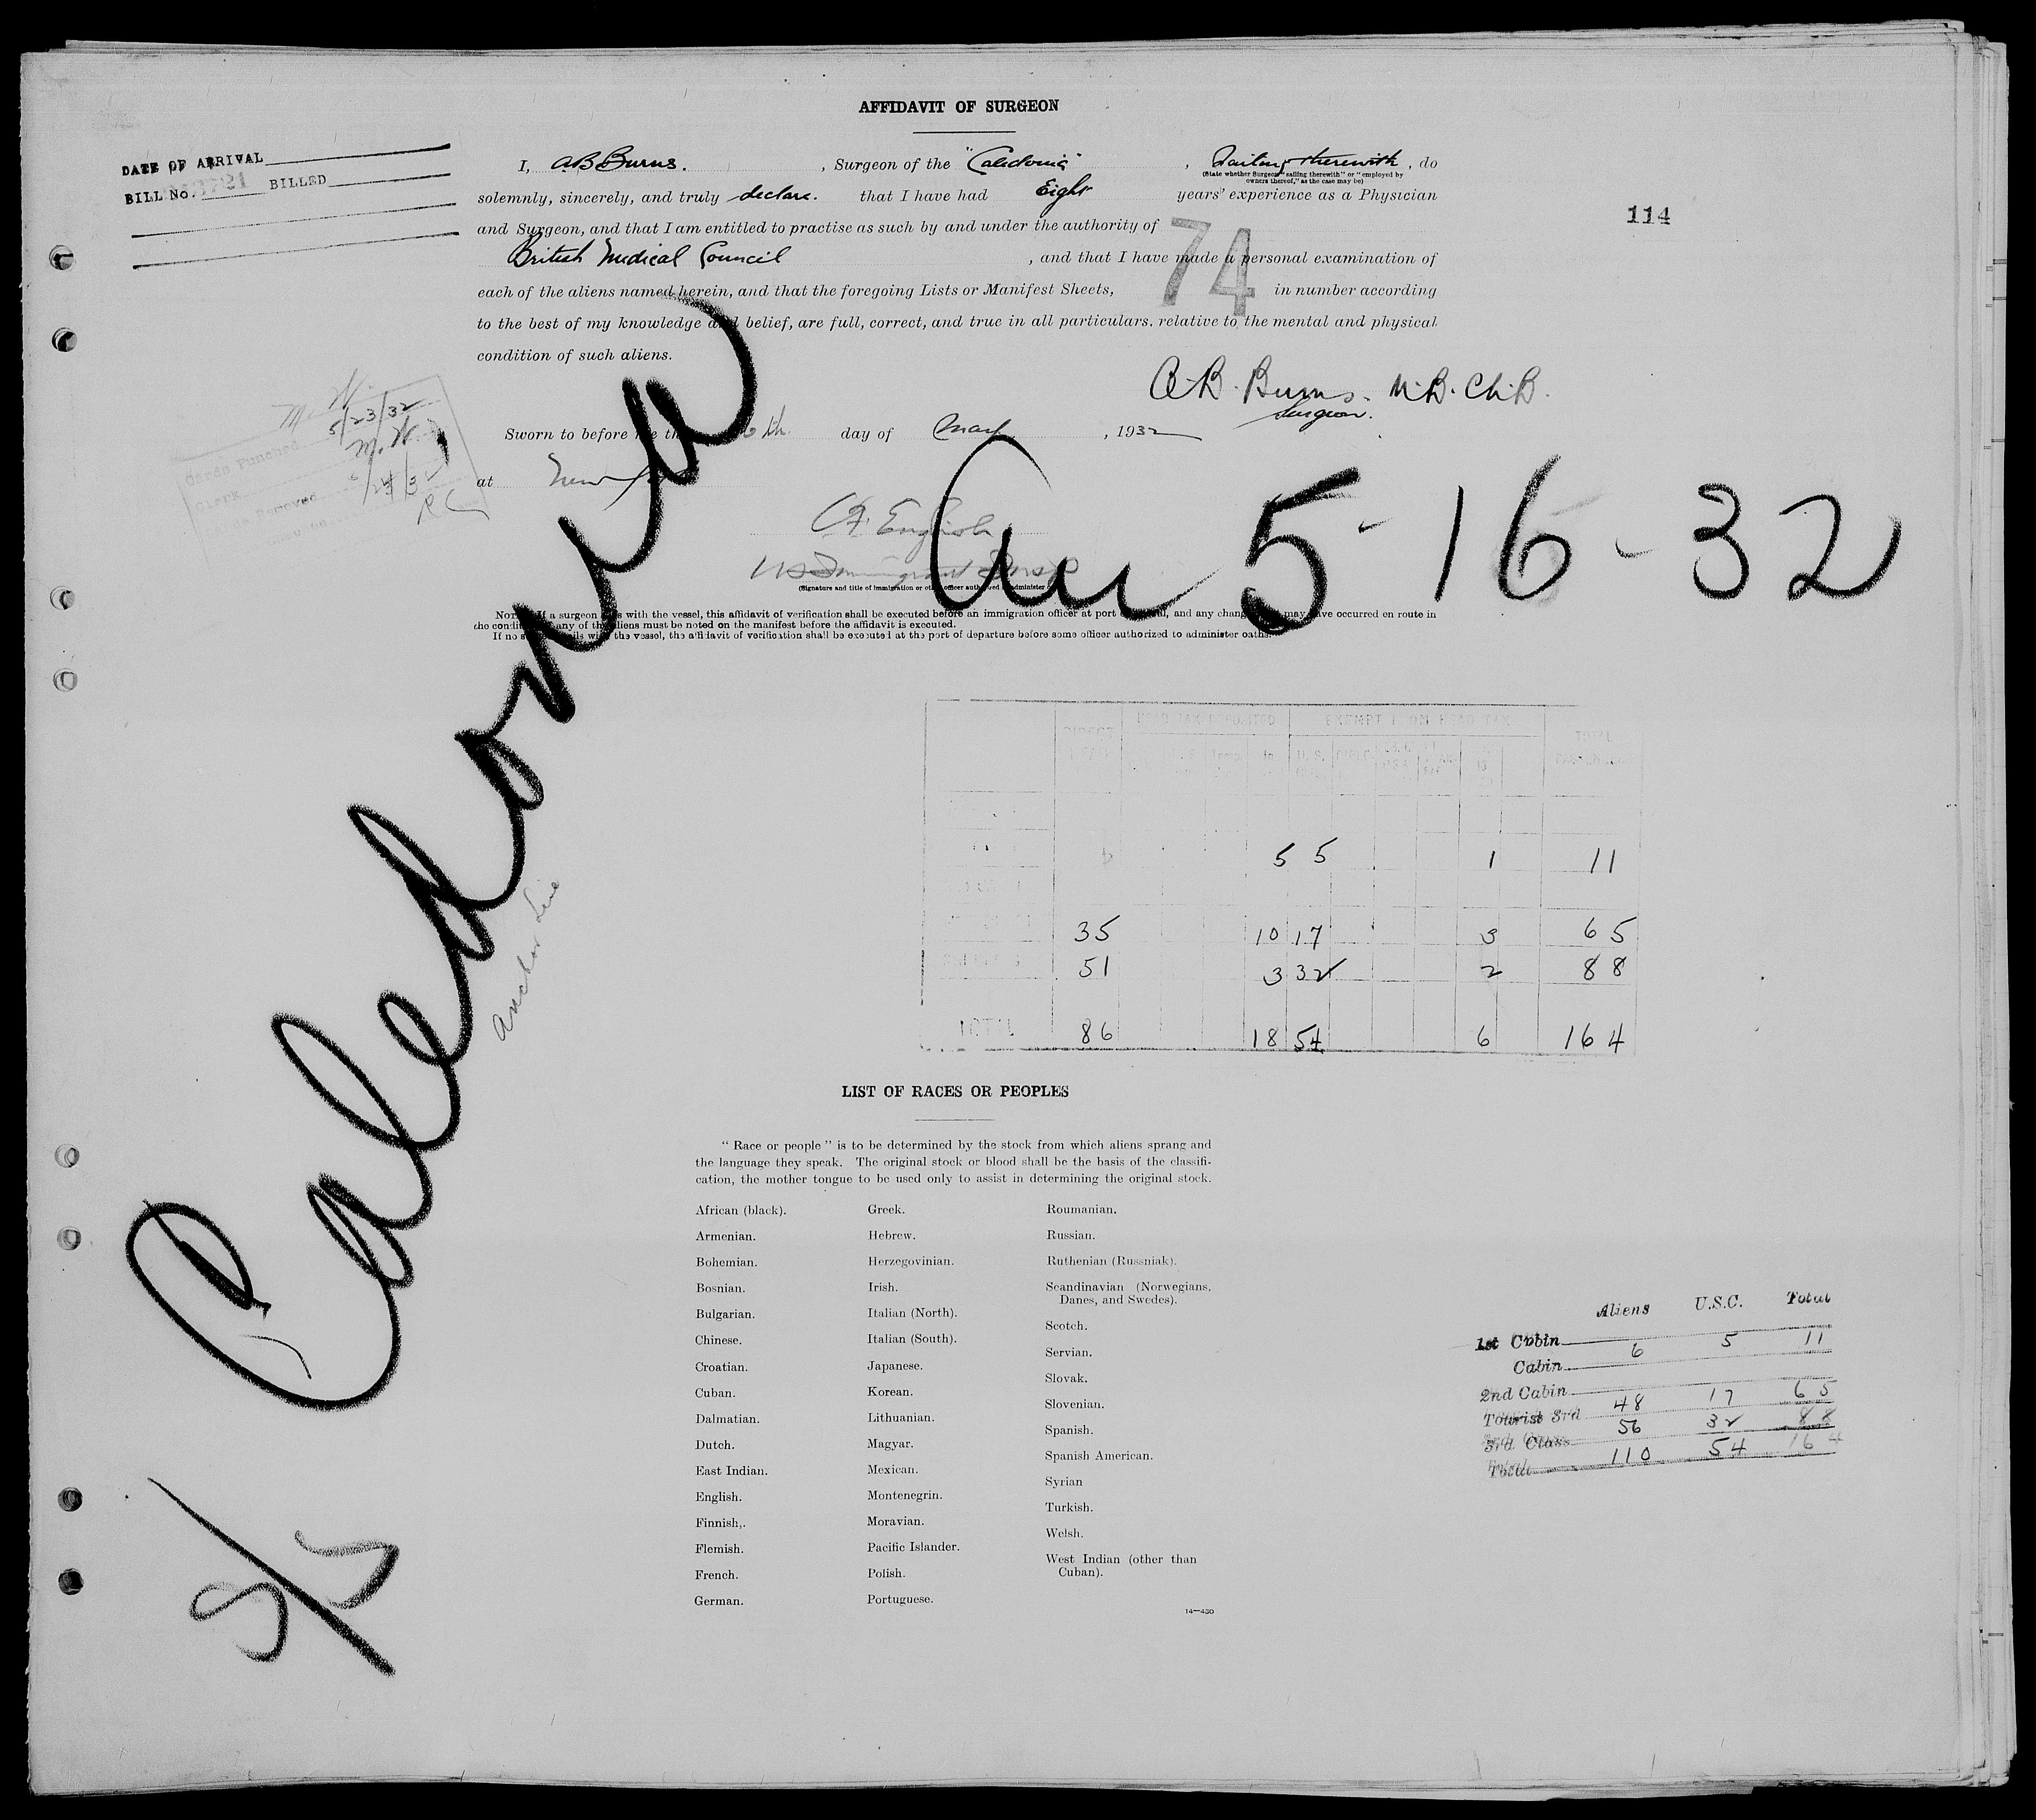 AFFIDAVIT OF SURGEON
DATE OF ARRIVAL
BILL No. BILLED
114
I, A.B Burns. , Surgeon of the "Caledonia" , Sailing therewith , do
(State whether Surgeon "sailing therewith" or "employed by
owners thereof," as the case may be)
solemnly, sincerely, and truly declare. that I have had Eight years' experience as a Physician
and Surgeon, and that I am entitled to practise as such by and under the authority of
British Medical Council , and that I have made a personal examination of
each of the aliens named herein, and that the foregoing Lists or Manifest Sheets, 74 in number according
to the best of my knowledge and belief, are full, correct, and true in all particulars. relative to the mental and physical
condition of such aliens.
A.B. Burns. M.B. Ch.B.
Surgeon.
Sworn to before me th day of May , 1932
at New
M. W.
5/23/32
M. W.
Cards Punched
Clerk
Removed
/24/32
RC
C.F. English
(Signature and title of immigration or other officer authorized administer
Arr 5-16-32
NOTE If a surgeon with the vessel, this affidavit of verification shall be executed before an immigration officer at port and any change may have occurred en route in
the condition any of the aliens must be noted on the manifest before the affidavit is executed.
If no sails with the vessel, the affidavit of verification shall be executed at the port of departure before some officer authorized to administer oaths.
S/S Caledonia
Anchor Line
HEAD TAX DEPOSITED EXEMPT FROM HEAD TAX
DIRECT TOTAL
U.S.
5 5 1 11
35 10 17 3 65
51 3 32 2 88
TOTAL 86 18 54 6 164
LIST OF RACES OR PEOPLES
" Race or people " is to be determined by the stock from which aliens sprang and
the language they speak. The original stock or blood shall be the basis of the classifi-
cation, the mother tongue to be used only to assist in determining the original stock.
African (black).
Armenian.
Bohemian.
Bosnian.
Bulgarian.
Chinese.
Croatian.
Cuban.
Dalmatian.
Dutch.
East Indian.
English.
Finnish,.
Flemish.
French.
German.
Greek.
Hebrew.
Herzegovinian.
Irish.
Italian (North).
Italian (South).
Japanese.
Korean.
Lithuanian.
Magyar.
Mexican.
Montenegrin.
Moravian.
Pacific Islander.
Polish.
Portuguese.
Roumanian.
Russian.
Ruthenian (Russniak).
Scandinavian (Norwegians,
Danes, and Swedes).
Scotch.
Servian.
Slovak.
Slovenian.
Spanish.
Spanish American.
Syrian
Turkish.
Welsh.
West Indian (other than
Cuban).
14—430
Aliens U.S.C. Total
1st Cabin 6 5 11
Cabin
2nd Cabin 48 17 65
Tourist 3rd 56 32 88
3rd Class 110 54 164
Total